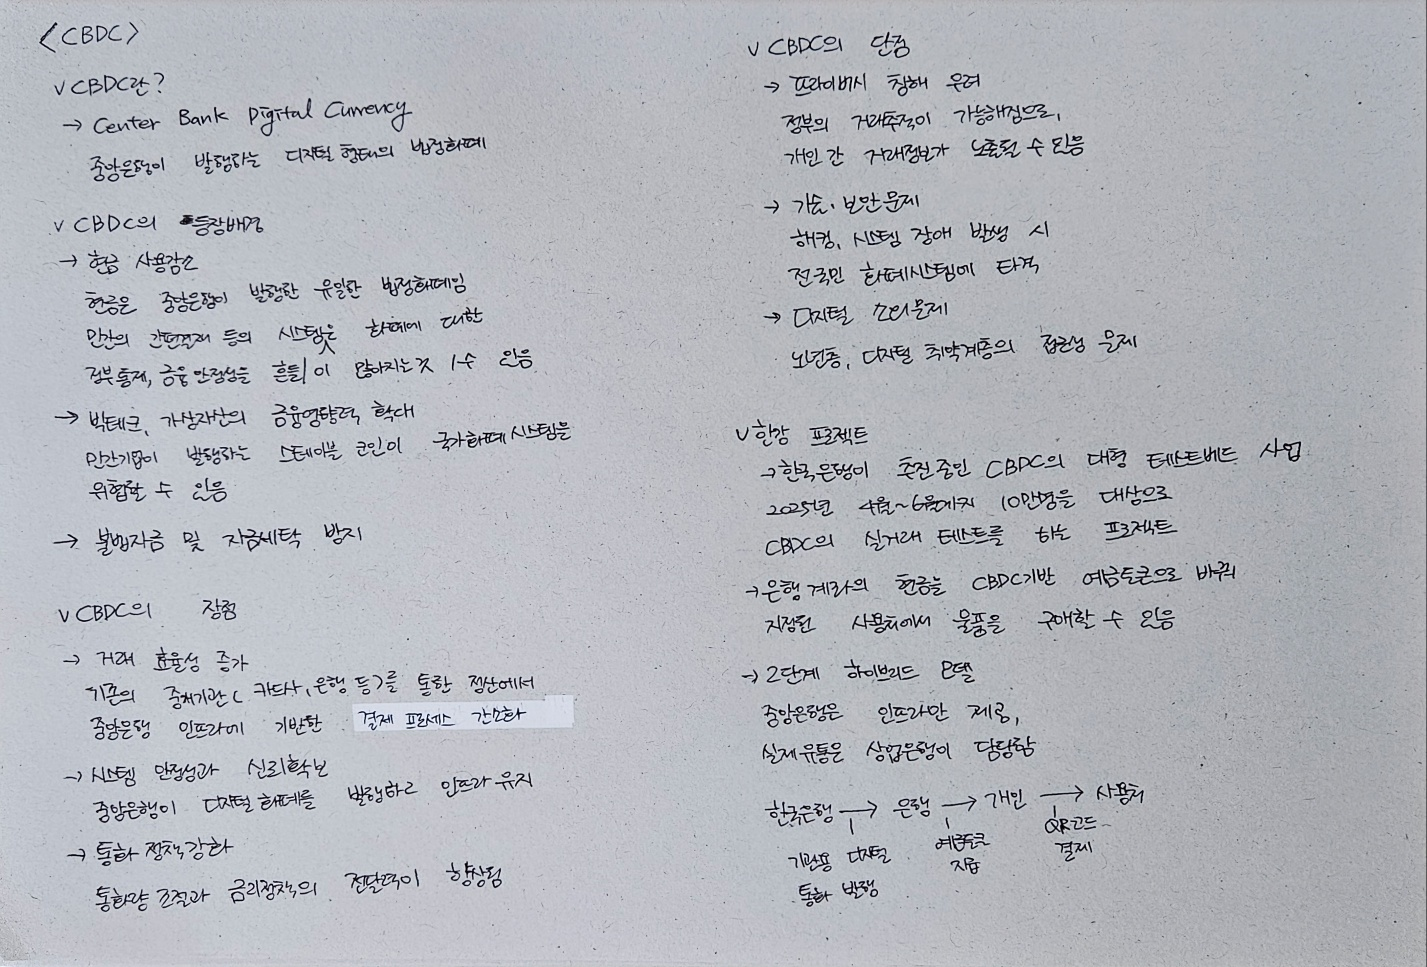 <CBDC>
v CBDC란?
→ Center Bank Digital Currency
중앙은행이 발행하는 디지털 형태의 법정화폐
v CBDC의 등장배경
→ 현금 사용감소
현금은 중앙은행이 발행한 유일한 법정화폐임
민간의 간편결제 등의 시스템은 화폐에 대한
정부통제, 금융안정성을 흔들 수 있음
→ 빅테크, 가상자산의 금융영향력 확대
민간기업이 발행하는 스테이블 코인이 국가화폐시스템을
위협할 수 있음
→ 불법자금 및 자금세탁 방지
v CBDC의 장점
→ 거래 효율성 증가
기존의 중개기관( 카드사, 은행 등)를 통한 정산에서
중앙은행 인프라에 기반한 결제 프로세스 간소화
→ 시스템 안정성과 신뢰확보
중앙은행이 디지털 화폐를 발행하고 인프라 유지
→ 통화 정책강화
통화량 조절과 금리정책의 전달력이 향상됨
v CBDC의 단점
→ 프라이버시 침해 우려
정부의 거래추적이 가능해짐으로,
개인 간 거래정보가 노출될 수 있음
→ 기술·보안문제
해킹, 시스템 장애 발생 시
전국민 화폐시스템에 타격
→ 디지털 소외문제
노년층, 디지털 취약계층의 접근성 문제
v 한강 프로젝트
→ 한국은행이 추진중인 CBDC의 대형 테스트베드 사업
2025년 4월~6월까지 10만명을 대상으로
CBDC의 실거래 테스트를 하는 프로젝트
→ 은행계좌의 현금을 CBDC기반 예금토큰으로 바꿔
지정된 사용처에서 물품을 구매할 수 있음
→ 2단계 하이브리드 모델
중앙은행은 인프라만 제공,
실제유통은 상업은행이 담당함
한국은행 → 은행 → 개인 → 사용처
기관용 디지털
통화 발행
예금토큰
지급
QR코드
결제